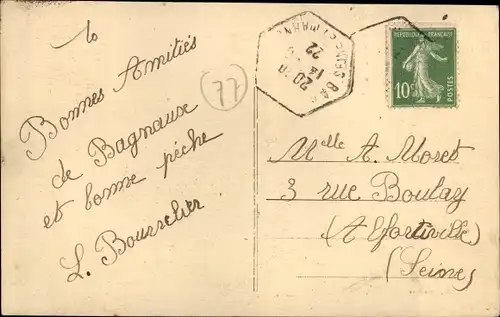 Bonnes Amitiés
de Bagnaux
et bonne pêche
L. Bourrelier
77
20
22
REPUBLIQUE FRANÇAISE
10c
POSTES
Melle A. Moret
3 rue Boulay
(Alfortville)
(Seine)